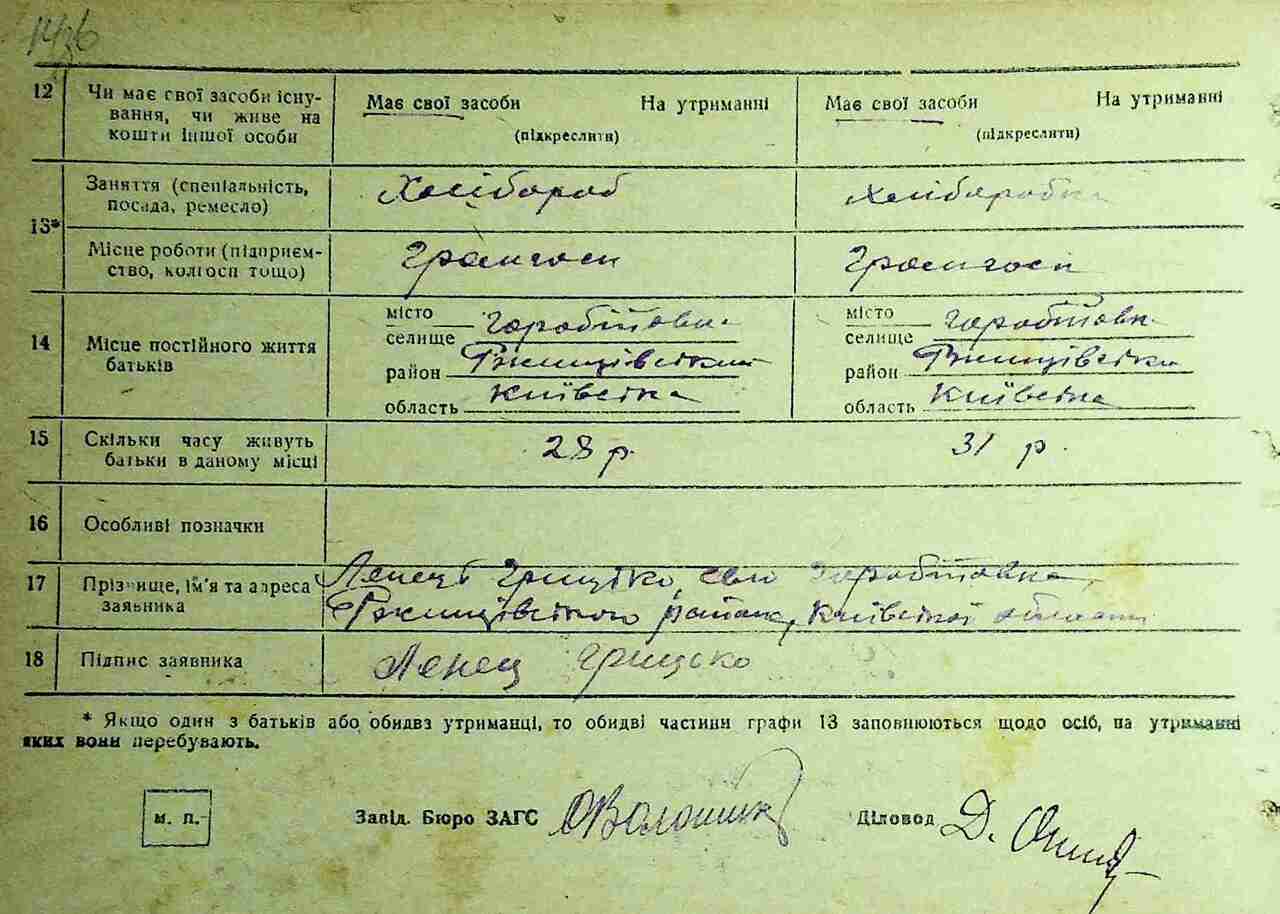 12 Чи має свої засоби існу- Має свої засоби На утриманні Має свої засоби На утриманні
вання, чи живе на
кошти іншої особи (підкреслити) (підкреслити)
Заняття (спеціальність, Хлібороб Хліборобка
посада, ремесло)
13*
Місце роботи (підприєм-
ство, колгосп тощо)
місто місто
селище селище
14 Місце постійного життя
батьків район Ржищівський район Ржищівський
область Київська область Київська
15 Скільки часу живуть 28 р. 31 р.
батьки в даному місці
16 Особливі позначки
17 Прізвище, ім'я та адреса Ленець Грицько, село
заявника Ржищівського району, Київської області
18 Підпис заявника Ленец Грицько
* Якщо один з батьків або обидва утриманці, то обидві частини графи 13 заповнюються щодо осіб, на утриманні
яких вони перебувають.
м. п. Завід. Бюро ЗАГС Діловод